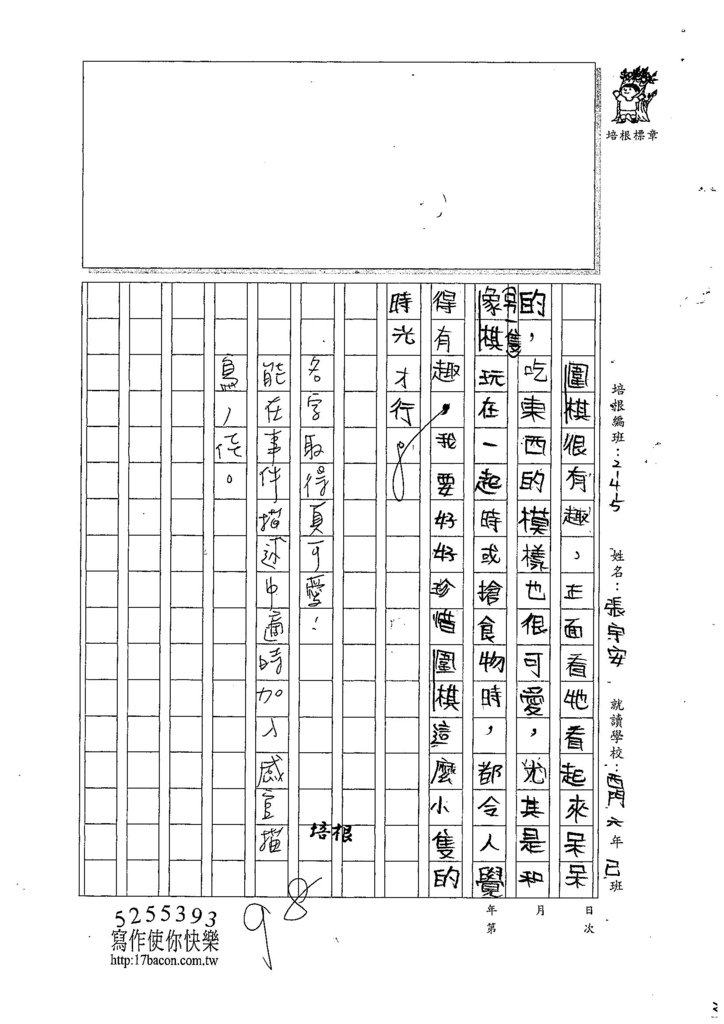 培根標章
培根編班：245 姓名：張宇安 就讀學校：西門 六年 己班
圍棋很有趣，正面看牠看起來呆呆
的，吃東西的模樣也很可愛，尤其是和
另一隻
像棋玩在一起時或搶食物時，都令人覺
得有趣，我要好好珍惜圍棋這麼小隻的
時光才行。
名字取得真可愛！
能在事件描述中適時加入感官描
寫，佳。
培根
98
年 月 日
第 次
5255393
寫作使你快樂
http:17bacon.com.tw